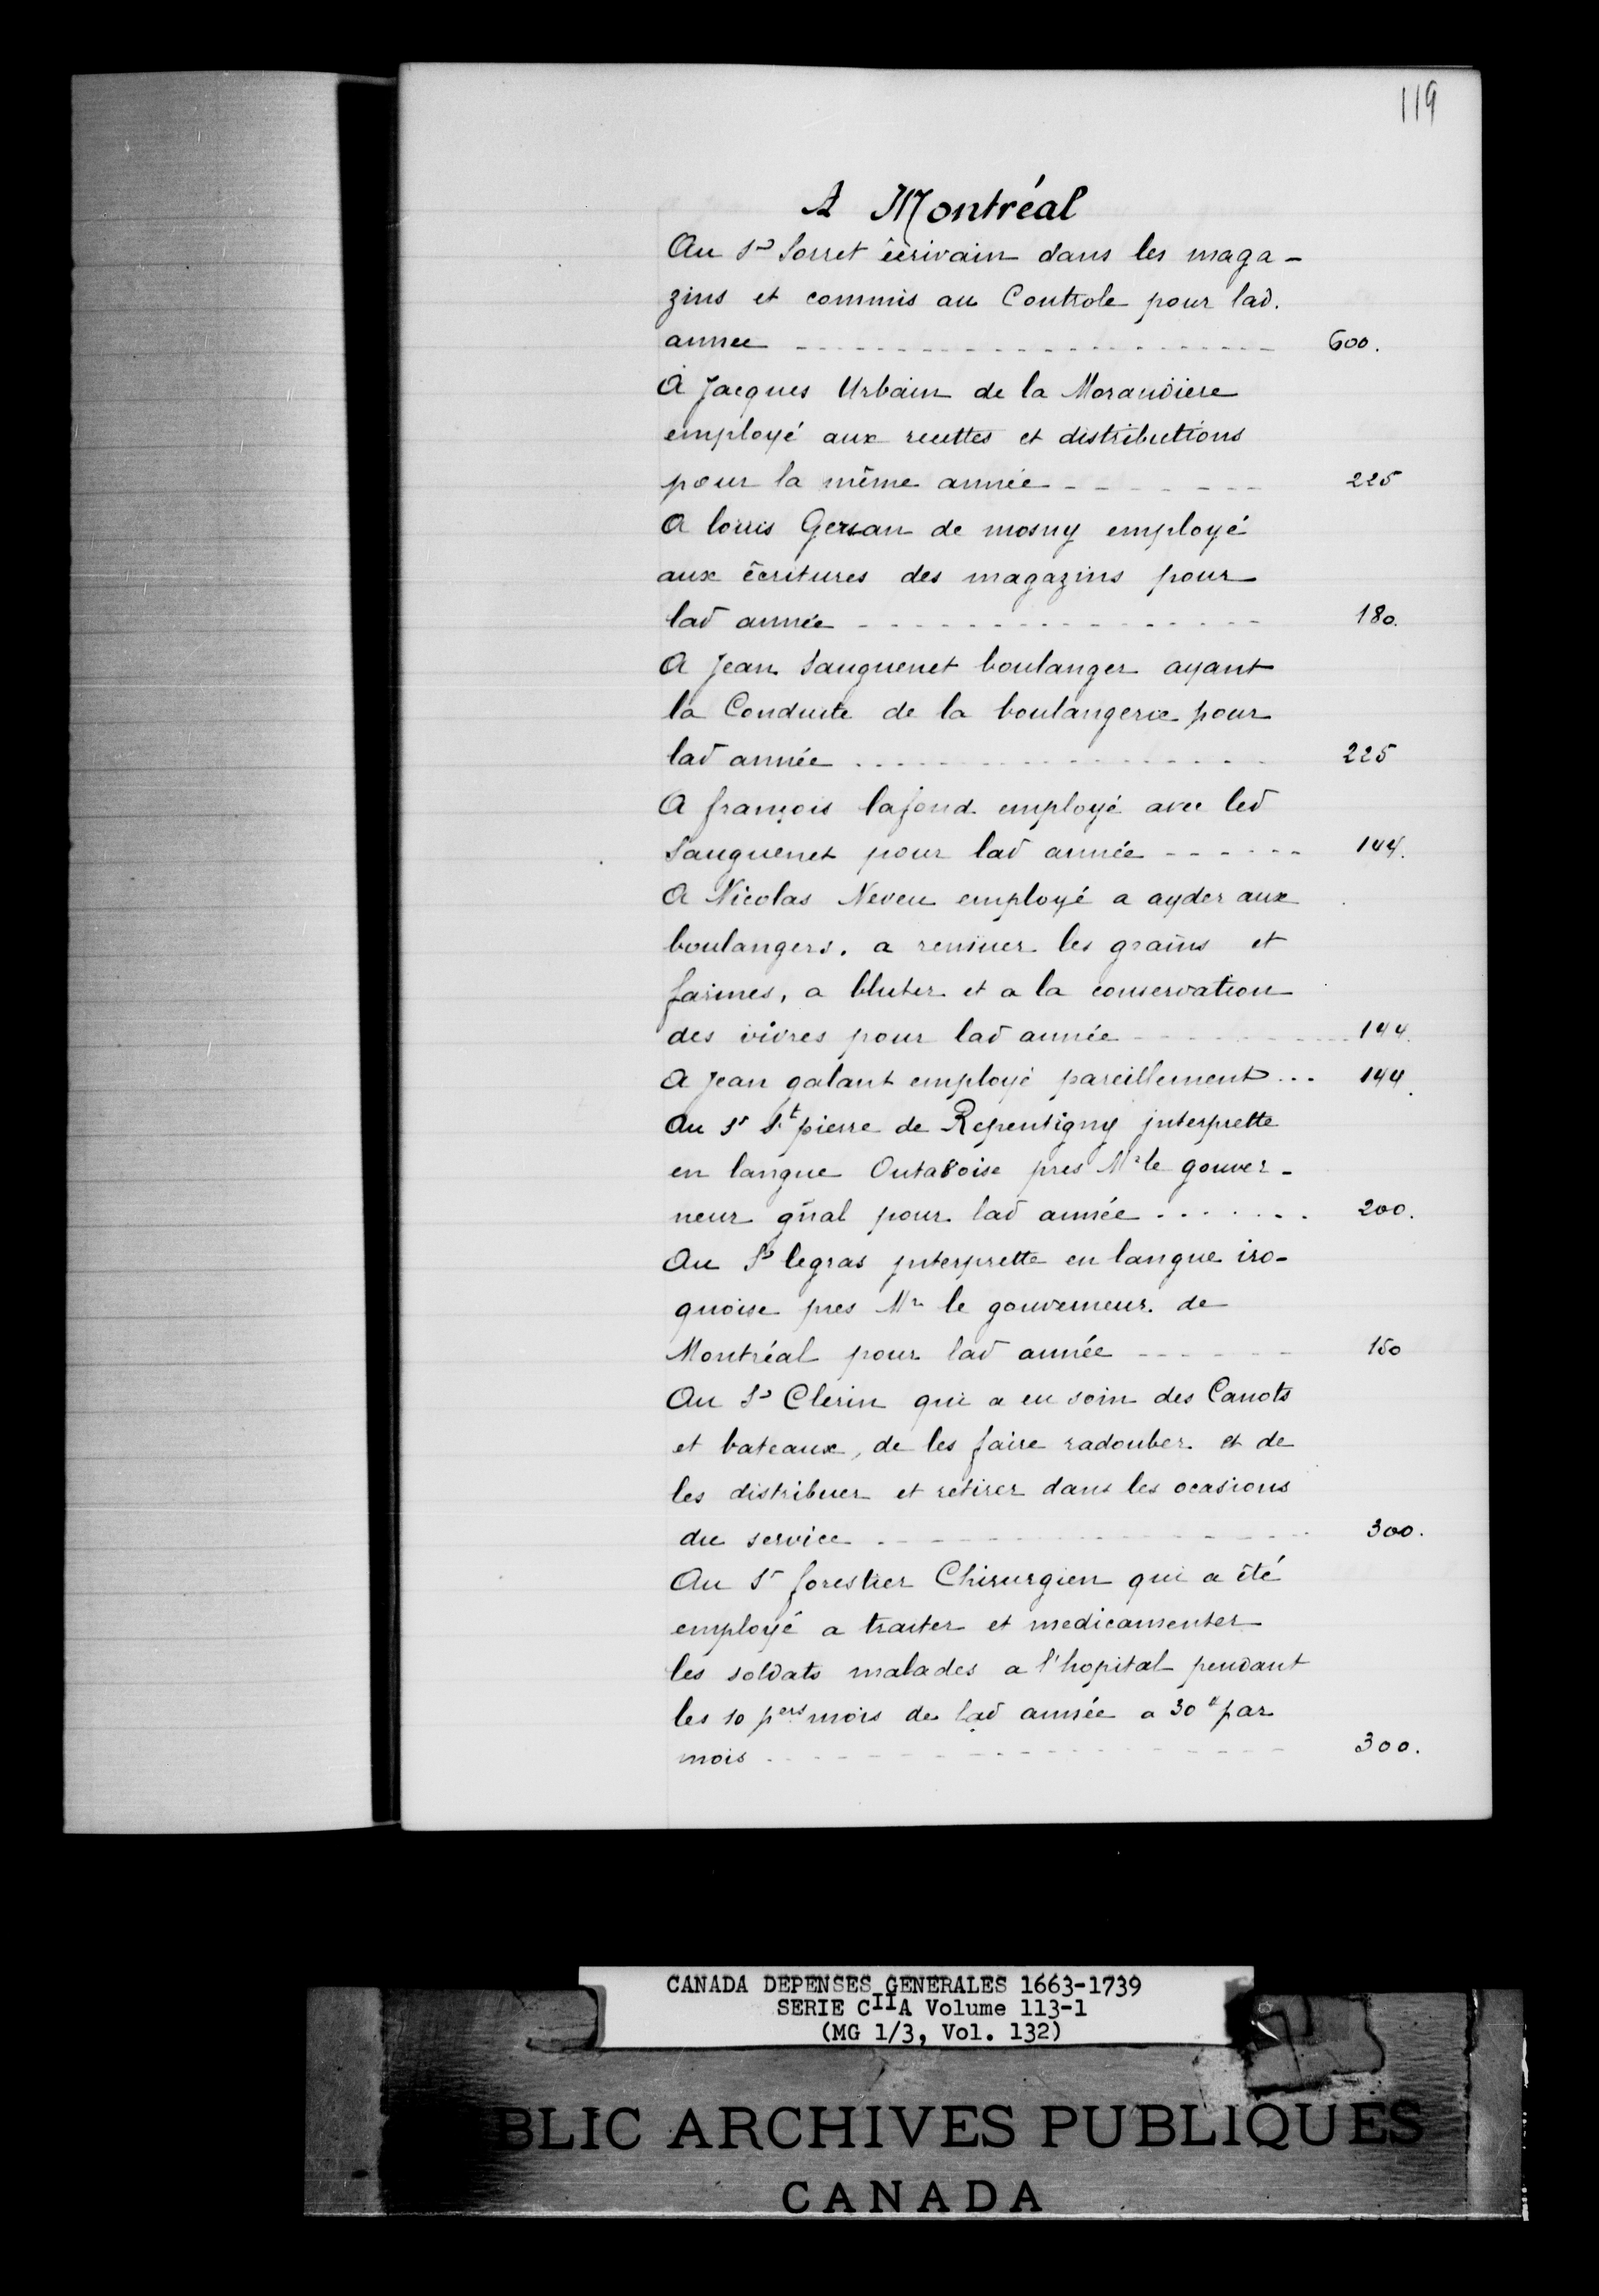 119
A Montréal
Au Sr Sorret écrivain dans les maga-
zins et commis au Controle pour lad.
annee 600.
A Jacques Urbain de la Morandiere
employé aux recettes et distributions
pour la même année 225
A louis Gersan de mosny employé
aux écritures des magazins pour
lad année 180.
A Jean Sauguenet boulanger ayant
la Conduite de la boulangerie pour
lad année 225
A françois lafond employé avec led
Sauguenet pour lad année 144.
A Nicolas Neveu employé a ayder aux
boulangers. a remuer les grains et
farines, a bluter et a la conservation
des vivres pour lad année 144.
A Jean galant employé pareillement ... 144.
Au Sr St pierre de Repentigny jnterprette
en langue Outa8oise pres Mr le gouver-
neur gñal pour lad année 200.
Au Sr legras jnterprette en langue iro-
quoise pres Mr le gouverneur de
Montréal pour lad année 150
Au Sr Clerin qui a eu soin des Canots
et bateaux, de les faire radouber et de
les distribuer et retirer dans les ocasions
du service 300.
Au Sr forestier Chirurgien qui a été
employé a traiter et medicamenter
les soldats malades a l'hopital pendant
les 10 pers mois de lad année a 30# par
mois 300.
CANADA DEPENSES GENERALES 1663-1739
SERIE CIIA Volume 113-1
(MG 1/3, Vol. 132)
BLIC ARCHIVES PUBLIQUES
CANADA